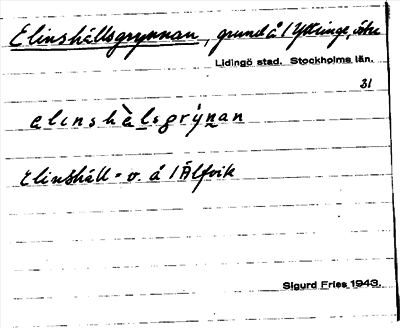 Elinshällsgrynnan, grund å 1 Yttringe, östu
Lidingö stad. Stockholms län.
31
elinshàlsgrýnan
Elinshäll - v. å 1 Älfvik
Sigurd Fries 1943.